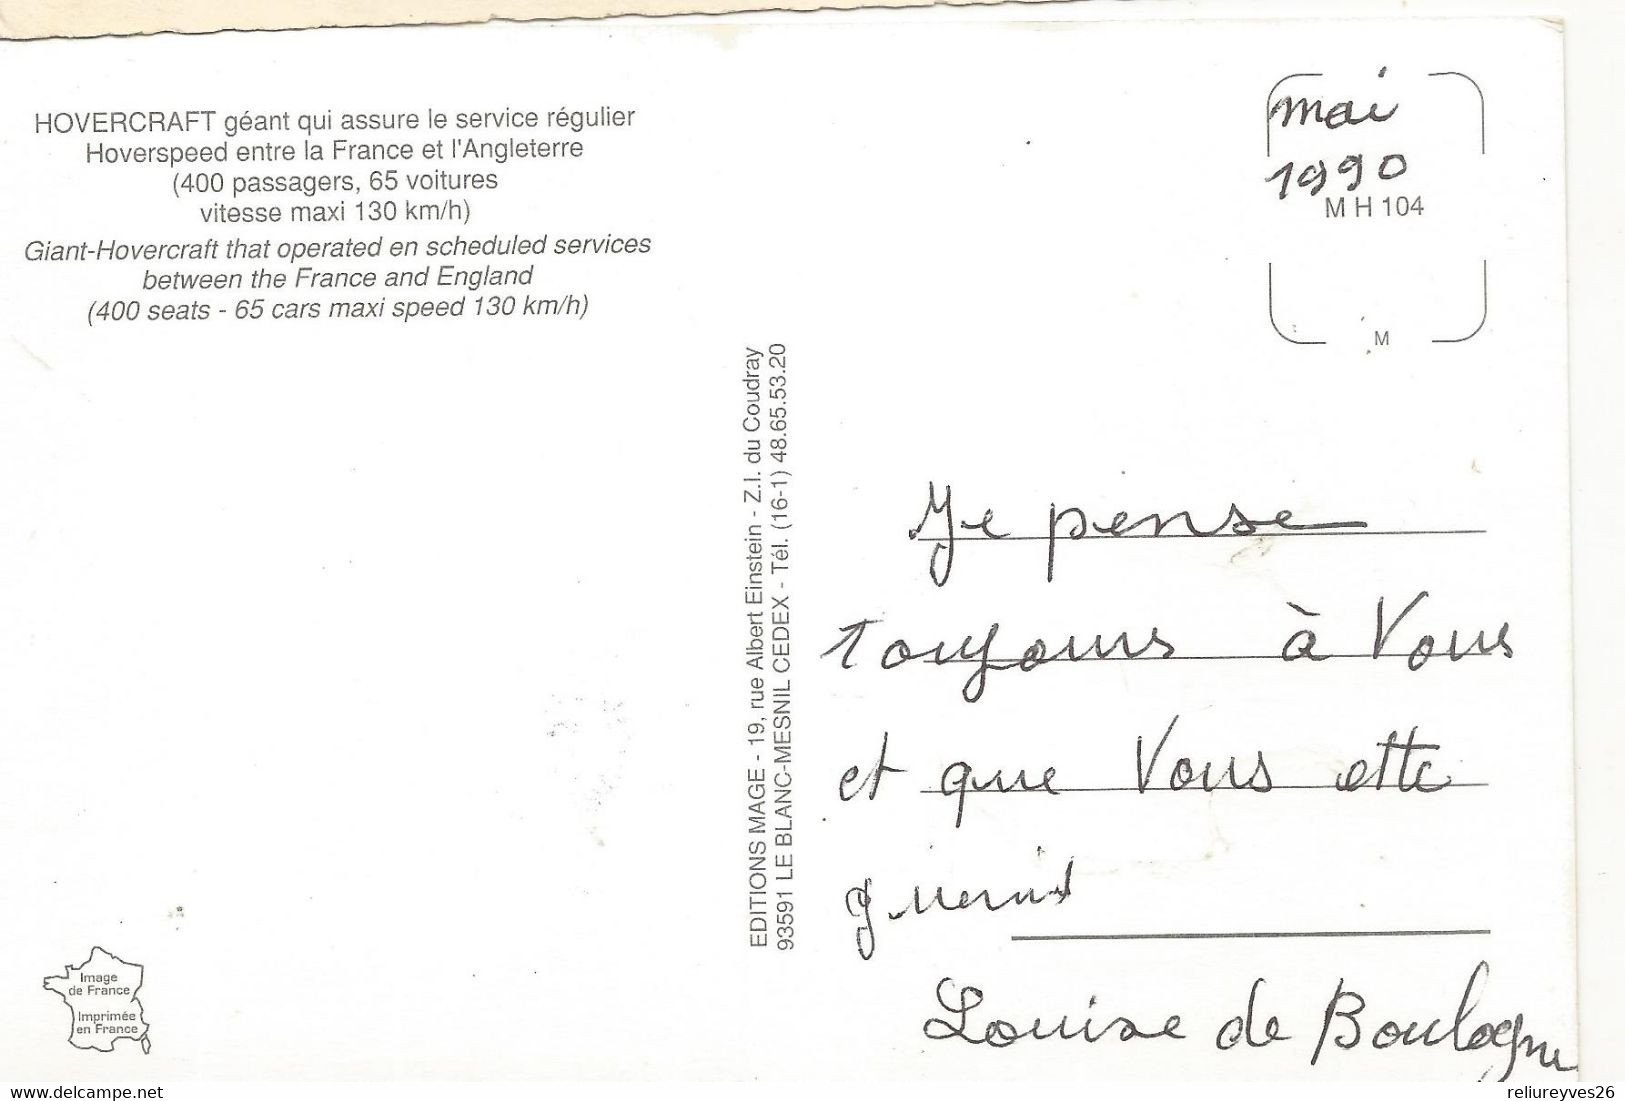 HOVERCRAFT géant qui assure le service régulier
Hoverspeed entre la France et l'Angleterre
(400 passagers, 65 voitures
vitesse maxi 130 km/h)
Giant-Hovercraft that operated en scheduled services
between the France and England
(400 seats - 65 cars maxi speed 130 km/h)
mai
1990
M H 104
M
EDITIONS MAGE - 19, rue Albert Einstein - Z.I. du Coudray
93591 LE BLANC-MESNIL CEDEX - Tél. (16-1) 48.65.53.20
Je pense
toujours à Vous
et que Vous ette
guerit
Louise de Boulogne
Image
de France
Imprimée
en France
DELCAMPE.NET
reliureyves26